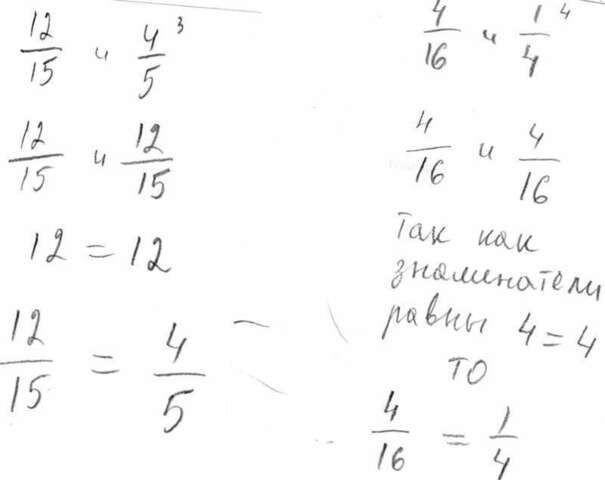 12/15 и 4/5 ³
12/15 и 12/15
12 = 12
12/15 = 4/5
4/16 и 1/4 ⁴
4/16 и 4/16
Так как
знаменатели
равны 4 = 4
то
4/16 = 1/4